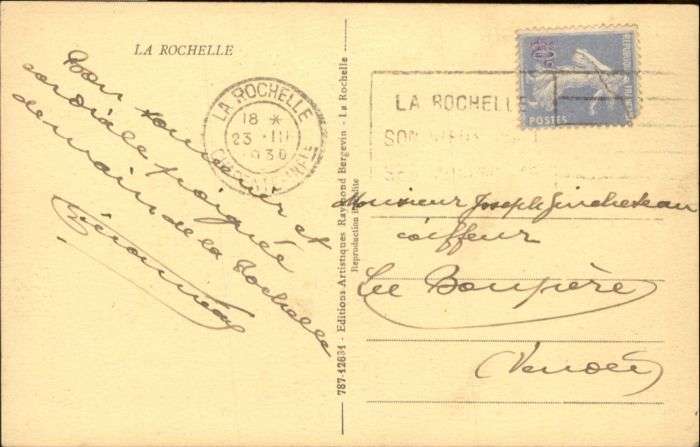 LA ROCHELLE
Bon souvenir et
cordiale poignée
de main de la Rochelle
LA ROCHELLE
18 *
23 III
1936
787-12631 - Editions Artistiques Raymond Bergevin - La Rochelle
Reproduction interdite
50c
POSTES
LA ROCHELLE
SON
Monsieur Joseph
coiffeur
Le Boupère
(Vendée)